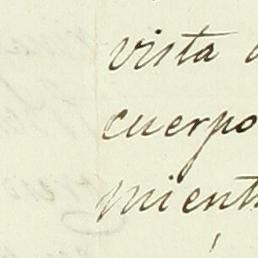 vista
cuerpo
mient